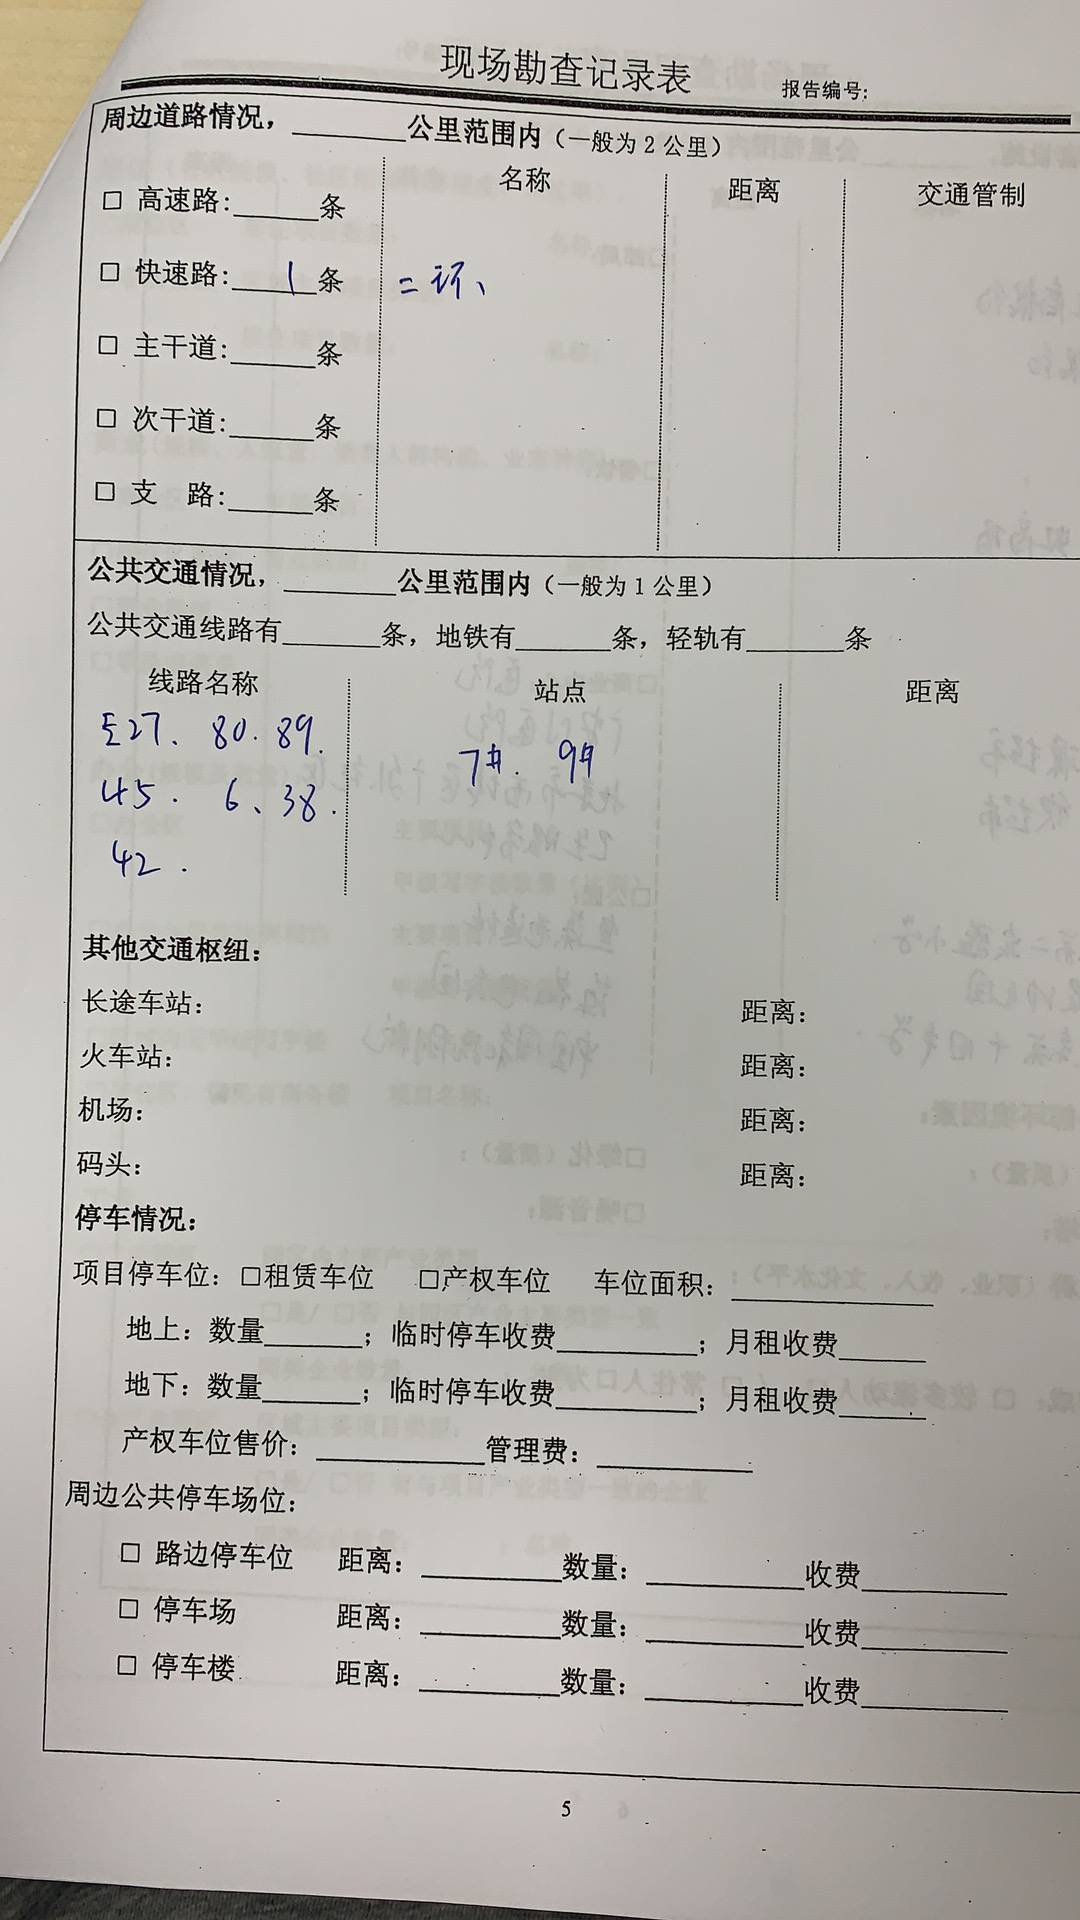 现场勘查记录表
报告编号:
周边道路情况，________公里范围内（一般为2公里）
名称 距离 交通管制
□ 高速路:______条
□ 快速路:___1__条 二环、
□ 主干道:______条
□ 次干道:______条
□ 支 路:______条
公共交通情况，________公里范围内（一般为1公里）
公共交通线路有_______条，地铁有_______条，轻轨有_______条
线路名称 站点 距离
27、80、89、
45、6、38、
42、
7#、9#
其他交通枢纽：
长途车站： 距离：
火车站： 距离：
机场： 距离：
码头： 距离：
停车情况：
项目停车位：□租赁车位 □产权车位 车位面积：______________
地上：数量_______；临时停车收费__________；月租收费______
地下：数量_______；临时停车收费__________；月租收费______
产权车位售价：____________管理费：___________
周边公共停车场位：
□ 路边停车位 距离：__________数量：___________收费__________
□ 停车场 距离：__________数量：___________收费__________
□ 停车楼 距离：__________数量：___________收费__________
5